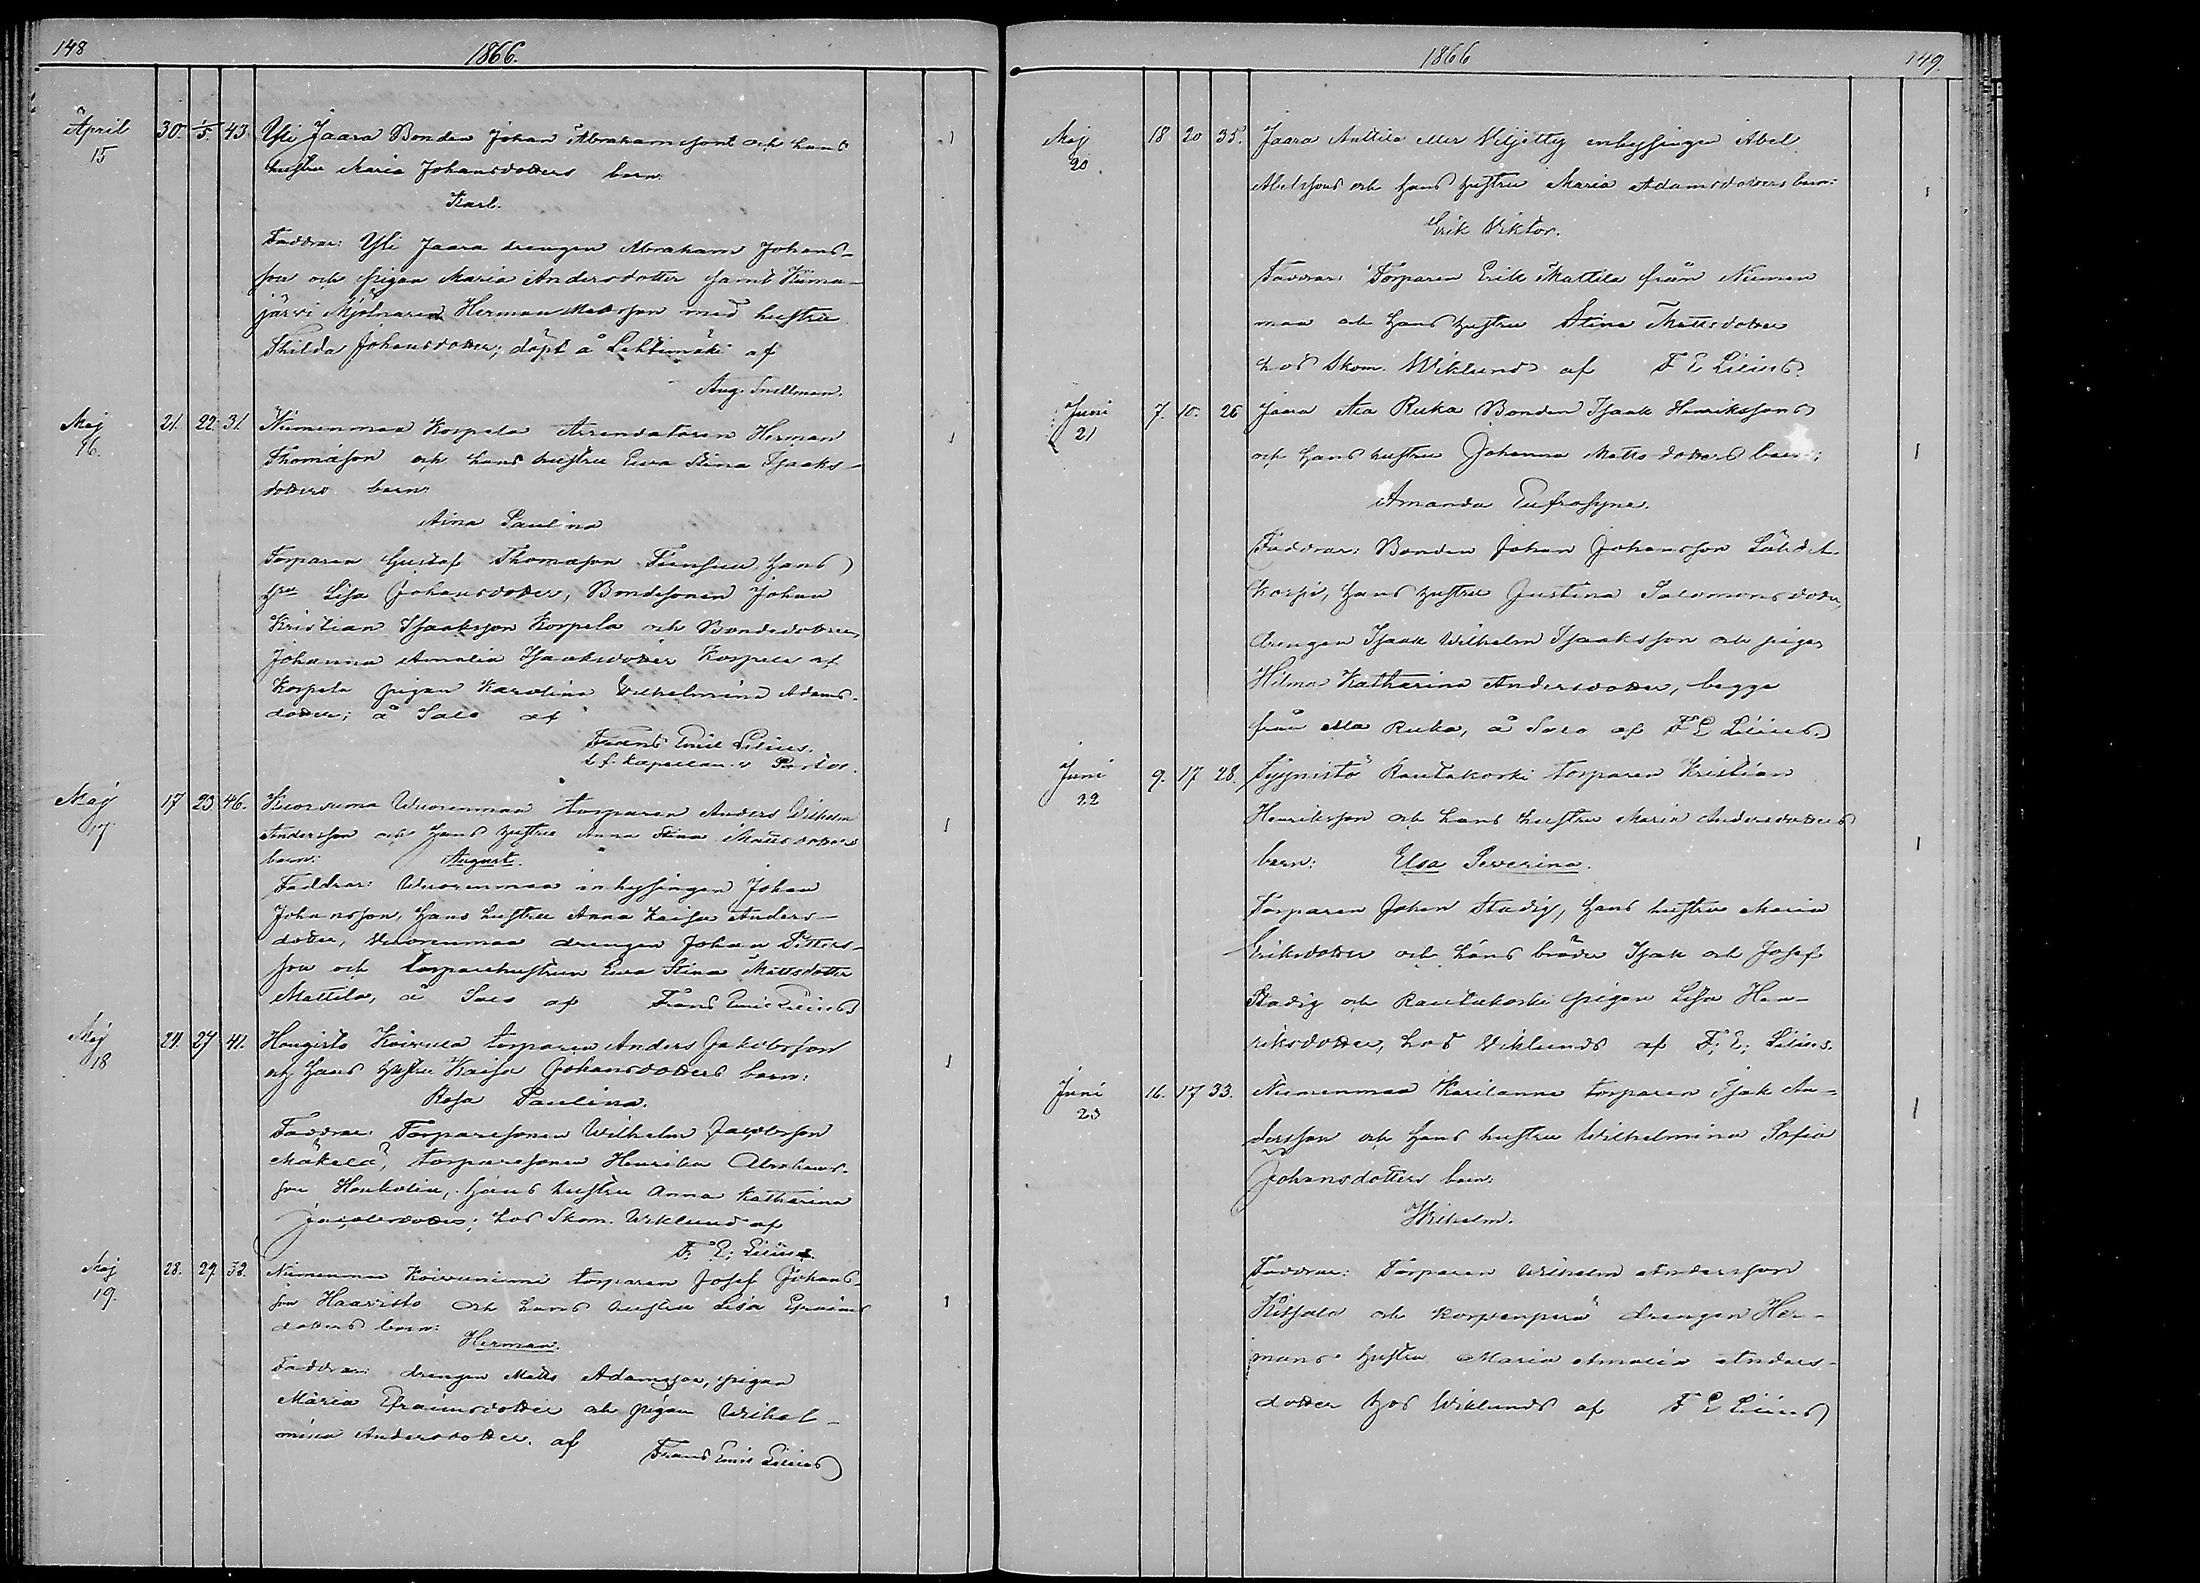 148
1866.
April 30. 1/5. 43. Yli Jaara Bonden Johan Abrahamsons och hans
15
hustru Maria Johansdotters barn.
Karl.
Faddrar: Yli Jaara drengen Abraham Johans-
son och pigan Maria Andersdotter samt Kiima-
järvi Mjölnaren Herman Matsson med hustru
Johansdotter; döpt å Lehtimäki af
Aug. Snellman.
Maj 21. 22. 31. Niemenmaa Korpela Arrendatoren Herman
16.
Thomason och hans hustru Eva Stina Isaaks-
dotters barn:
Aina Paulina
Torparen Gustaf Thomason hans
hru Lisa Johansdotter, Bondesonen Johan
Kristian Isaaksson Korpela och Bondedottren
Johanna Amalia Isaaksdotter Korpela af
Korpela pigan Karolina Wilhelmina Adams-
dotter; å Salo af
Frans Emil Lilius.
t.f. Kapellan o Pastor.
Maj 17 23 46. Wuorenmaa torparen Anders Wilhelm
17
Andersson och hans hustru Anna Stina Mattsdotters
barn: August.
Faddrar: Wuorenmaa inhysingen Johan
Johansson, hans hustru Anna Kaisa Anders-
dotter, Wuorenmaa drengen Johan Petters-
son och torparehustrun Eva Stina Mattsdotter
Mattila, å Salo af Frans Emil Lilius
Maj 24. 27 41. Hongisto Koivula torparen Anders Jakobsson
18
och hans hustru Kaisa Johansdotters barn:
Rosa Paulina.
Faddrar: Torparesonen Wilhelm Jacobsson
Mäkelä, torparesonen Henrik Abrahams-
son hans hustru Anna Katharina
Jacobsdotter; hos Skom. Wiklund af
F. E; Lilius.
Maj 28. 29. 32. Niemenmaa Koivuniemi torparen Josef Johans-
19.
son Haavisto och hans hustru Lisa Efraims
dotters barn:
Herman.
Faddrar: drengen Matts Adamsson, pigan
Maria Efraimsdotter och pigan Wilhel-
mina Andersdotter. af Frans Emil Lilius
1866
149.
Maj 18 20 35. Jaara Anttila eller Viljotty inhysingen Abel
20
Abelssons och hans hustru Maria Adamsdotters barn:
Erik Viktor.
Faddrar: Torparen Erik Mattila från Niemen
maa och hans hustru Stina Mattsdotter
hos Skom. Wiklund af F E Lilius.
Juni 7. 10. 26 Jaara Ala Ruka Bonden Isaak Henrikssons
21
och hans hustru Johanna Mattsdotters barn;
Amanda Eufrosyne.
Faddrar: Bonden Johan Johansson
hans hustru Justina Salomonsdotter,
drengen Isaak Wilhelm Isaaksson och pigan
Hilma Katharina Andersdotter, begge
från Ala Ruka, å Salo af F E Lilius.
Juni 9. 17 28. Syynistö Rautakoski torparen Kristian
22
Henriksson och hans hustru Maria Andersdotters
barn: Elsa Severina.
Torparen Johan Stadig, hans hustru Maria
Eriksdotter och hans bröder Isak och Josef
Stadig och Rautakoski pigan Lisa Hen-
riksdotter, hos Wiklunds af F; E; Lilius.
Juni 16. 17 33. Niemenmaa Karilanma torparen Isak An-
23
dersson och hans hustru Wilhelmina Sofia
Johansdotters barn:
Wilhelm.
Faddrar: Torparen Wilhelm Andersson
och Korpenperä drengen Her-
mans hustru Maria Amalia Anders-
dotter hos Wiklunds af F E Lilius